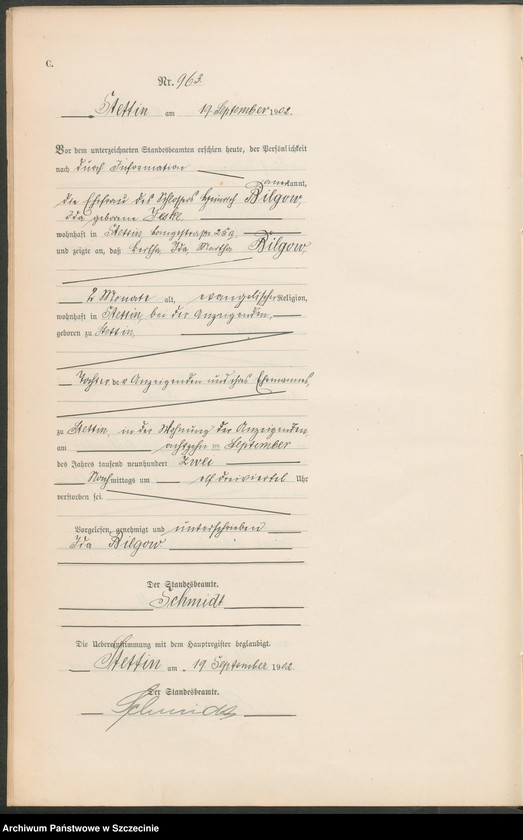 C.
Nr. 963.
Stettin am 19 September 1902.
Vor dem unterzeichneten Standesbeamten erschien heute, der Persönlichkeit
nach durch Information
anerkannt,
die Ehefrau des Schlossers Heinrich Bilgow,
Ida geborene
wohnhaft in Stettin, Langestraße
und zeigte an, daß Bertha, Ida, Martha Bilgow,
2 Monate alt, evangelischer Religion,
wohnhaft in Stettin, bei der Anzeigenden,
geboren zu Stettin,
Tochter der Anzeigenden und ihres Ehemannes,
zu Stettin, in der Wohnung der Anzeigenden
am achtzehn ten September
des Jahres tausend neunhundert zwei
Nachmittags um elf dreiviertel Uhr
verstorben sei.
Vorgelesen, genehmigt und unterschrieben
Ida Bilgow
Der Standesbeamte.
Schmidt
Die Uebereinstimmung mit dem Hauptregister beglaubigt.
Stettin am 19 September 1902
Der Standesbeamte.
Schmidt
Archiwum Państwowe w Szczecinie